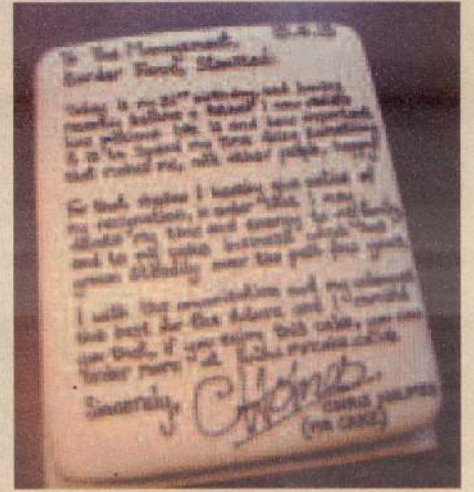 To The Management,
Border Force, Stansted.
Today is my 31st birthday, and having
recently become a father I now realise
how precious life is and how important
it is to spend my time doing something
that makes me, and other people, happy.
For that reason I hereby give notice of
my resignation, in order that I may
devote my time and energy to my family
and to my cake business which has
grown steadily over the past few years.
I wish the organisation and my colleagues
the best for the future, and I remind
you that, if you enjoy this cake, you can
order more at
Sincerely, CHolmes
CHRIS HOLMES
(MR CAKE)